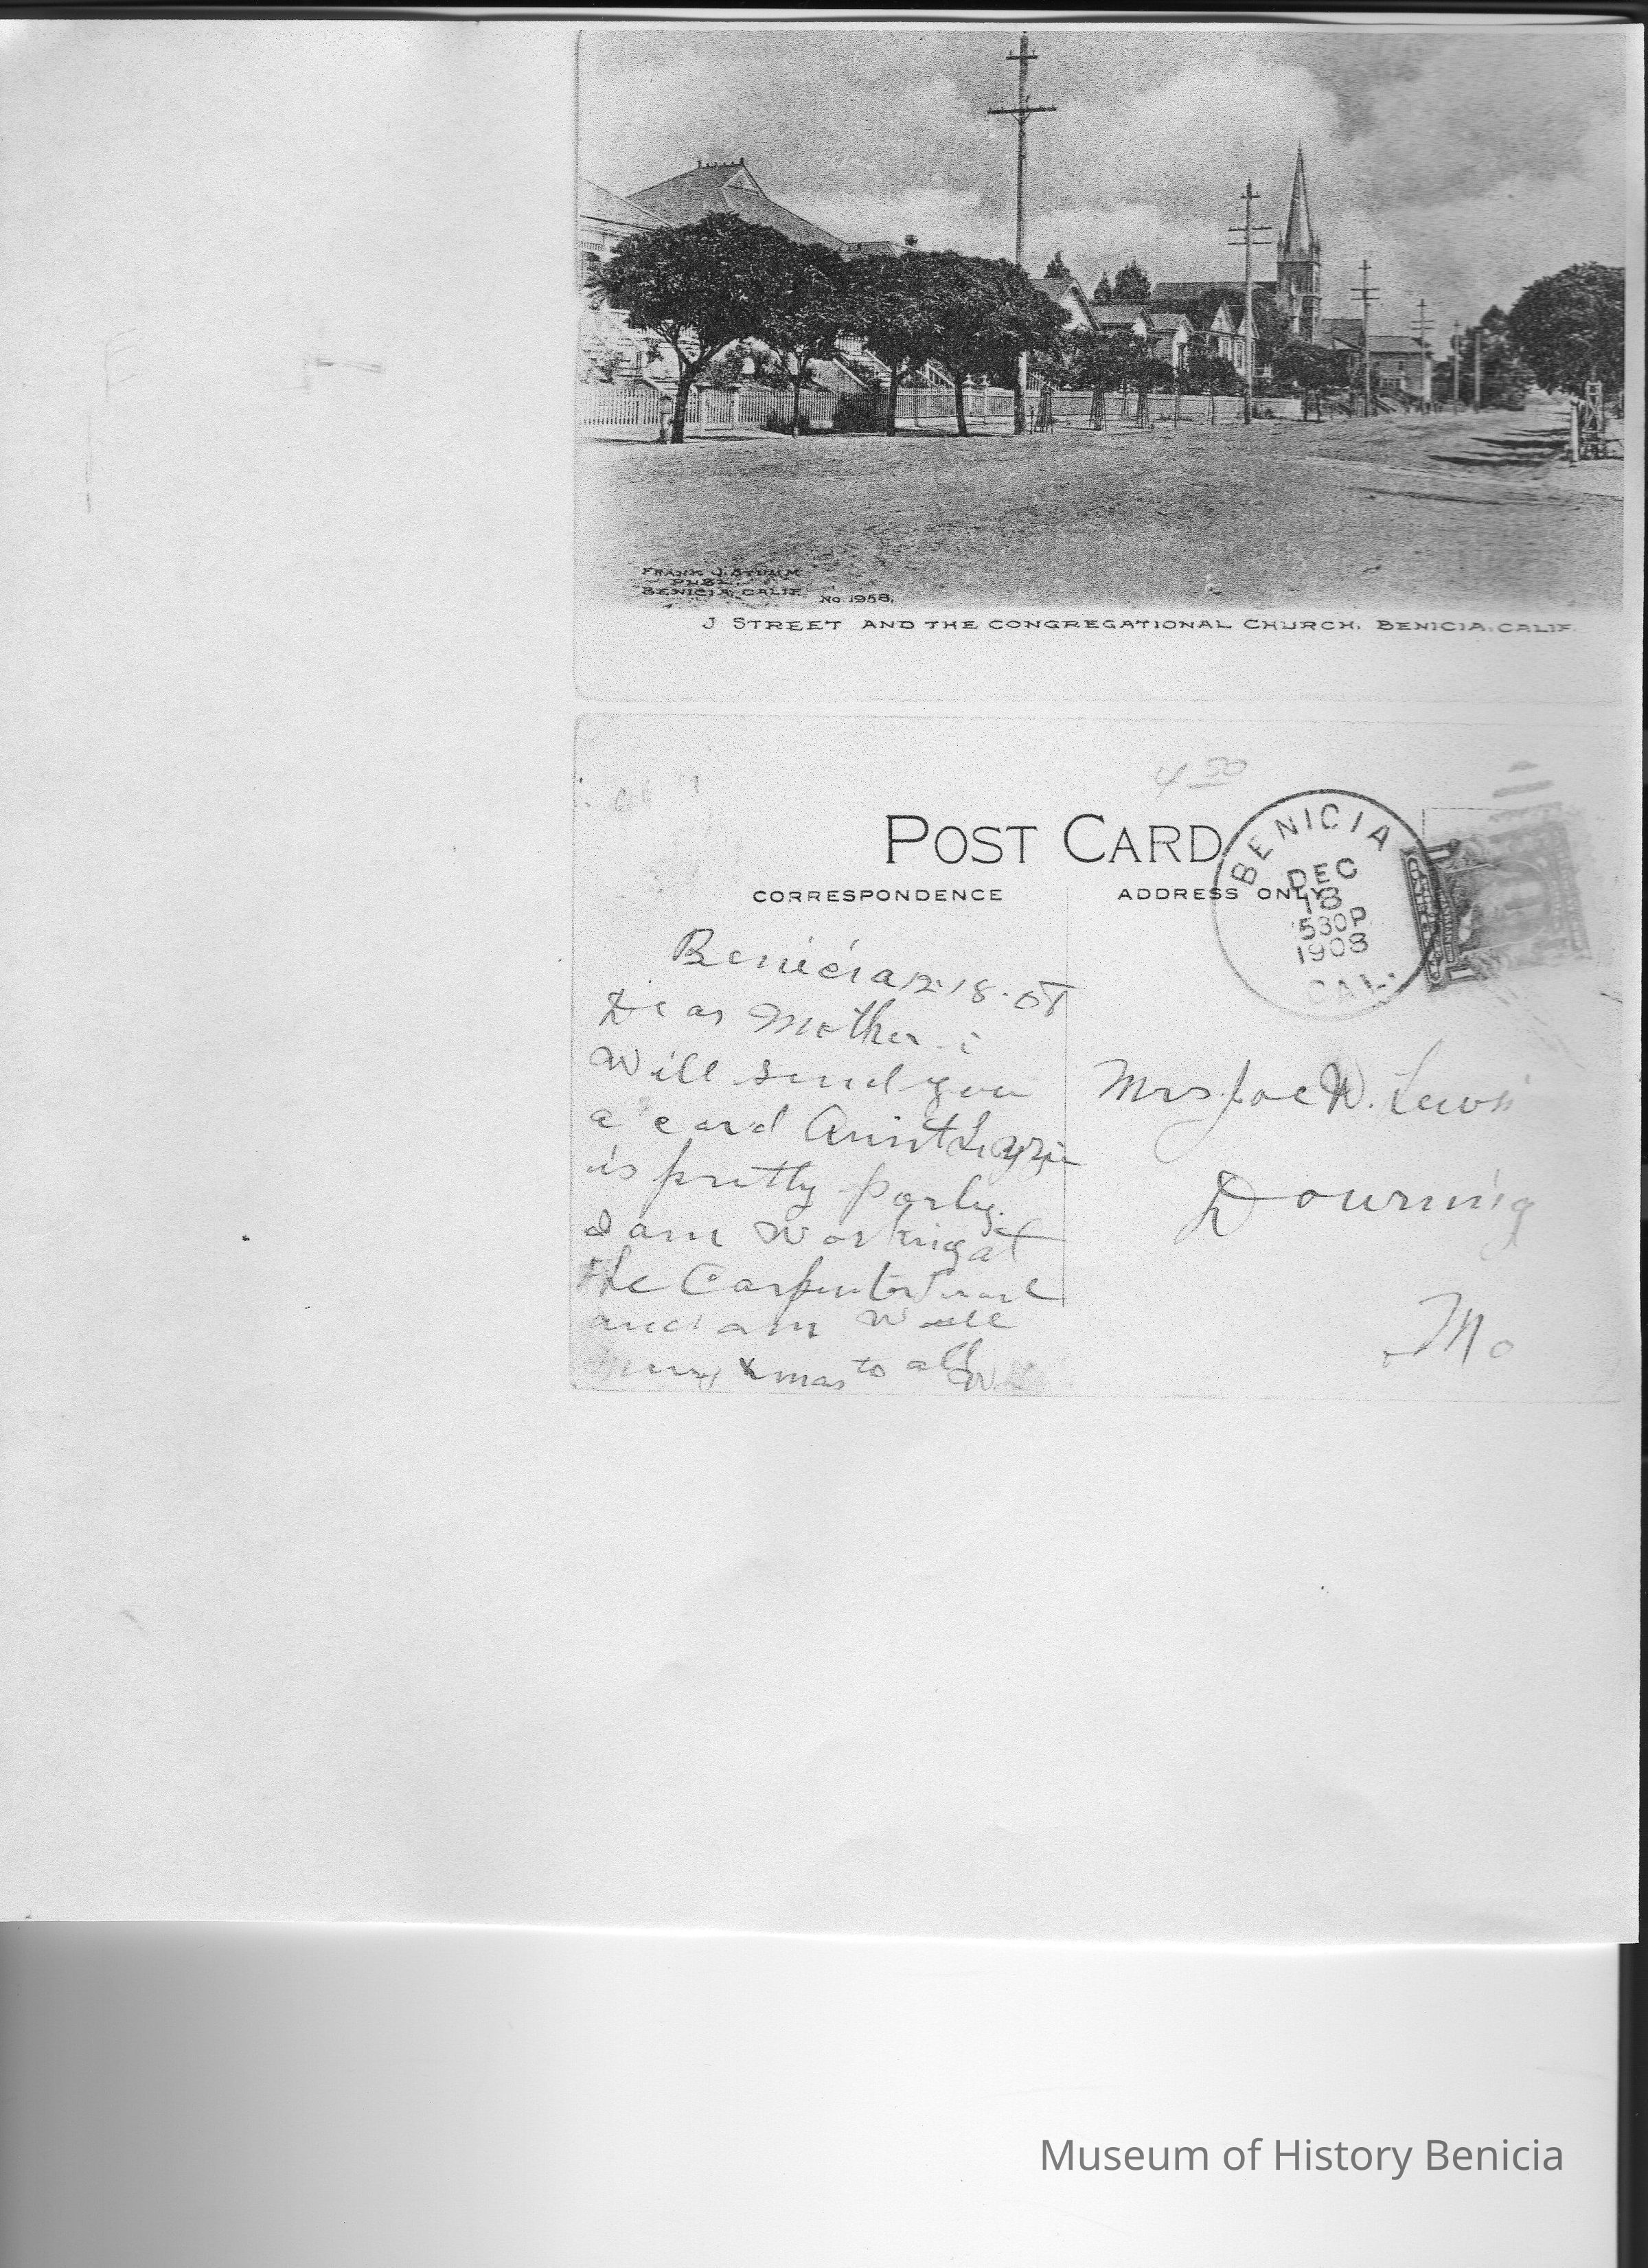 FRANK J. STUMM
PUBL.
BENICIA, CALIF. No. 1958.
J STREET AND THE CONGREGATIONAL CHURCH, BENICIA, CALIF.
4 50
POST CARD
CORRESPONDENCE
ADDRESS ONLY
BENICIA
DEC
18
530P
1908
CAL.
Benicia 12-18-08
Dear Mother i
Will send you
a card Aunt Lizzie
is pretty porly.
I am Working at
the Carpenter
and am Well
Merry Xmas to all
Mrs. Joe W. Lewis
Downing
Mo
Museum of History Benicia